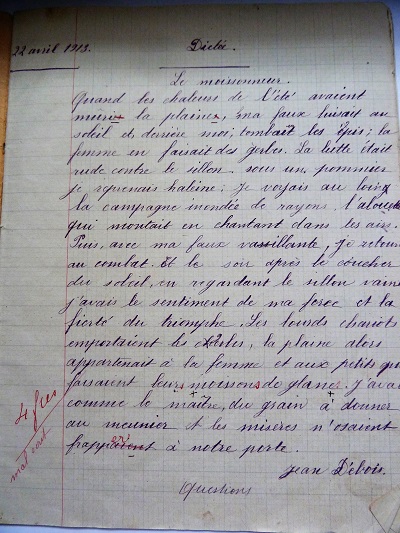 22 avril 1913.
Dictée.
Le moissonneur.
Quand les chaleurs de l'été avaient
muri la plaine, ma faux luisait au
soleil et derrière moi, tombait les épis; la
femme en faisait des gerbes. La lutte était
rude contre le sillon. sous un pommier
je reprenais haleine; je voyais au loin
la campagne inondée de rayons. l'alouette
qui montait en chantant dans les airs.
Puis, avec ma faux vaillante, je retour
au combat. Et le soir après le coucher
du soleil, en regardant le sillon vain
j'avais le sentiment de ma force et la
fierté du triomphe. Les lourds chariots
emportaient les, la plaine alors
appartenait à la femme et aux petits qui
faisaient leurs moissons de glanes. j'avai
comme le maître, du grain à donner
au meunier et les misères n'osaient
frapper à notre porte.
4 fres
mal écrit
Jean D'ebois.
Questions